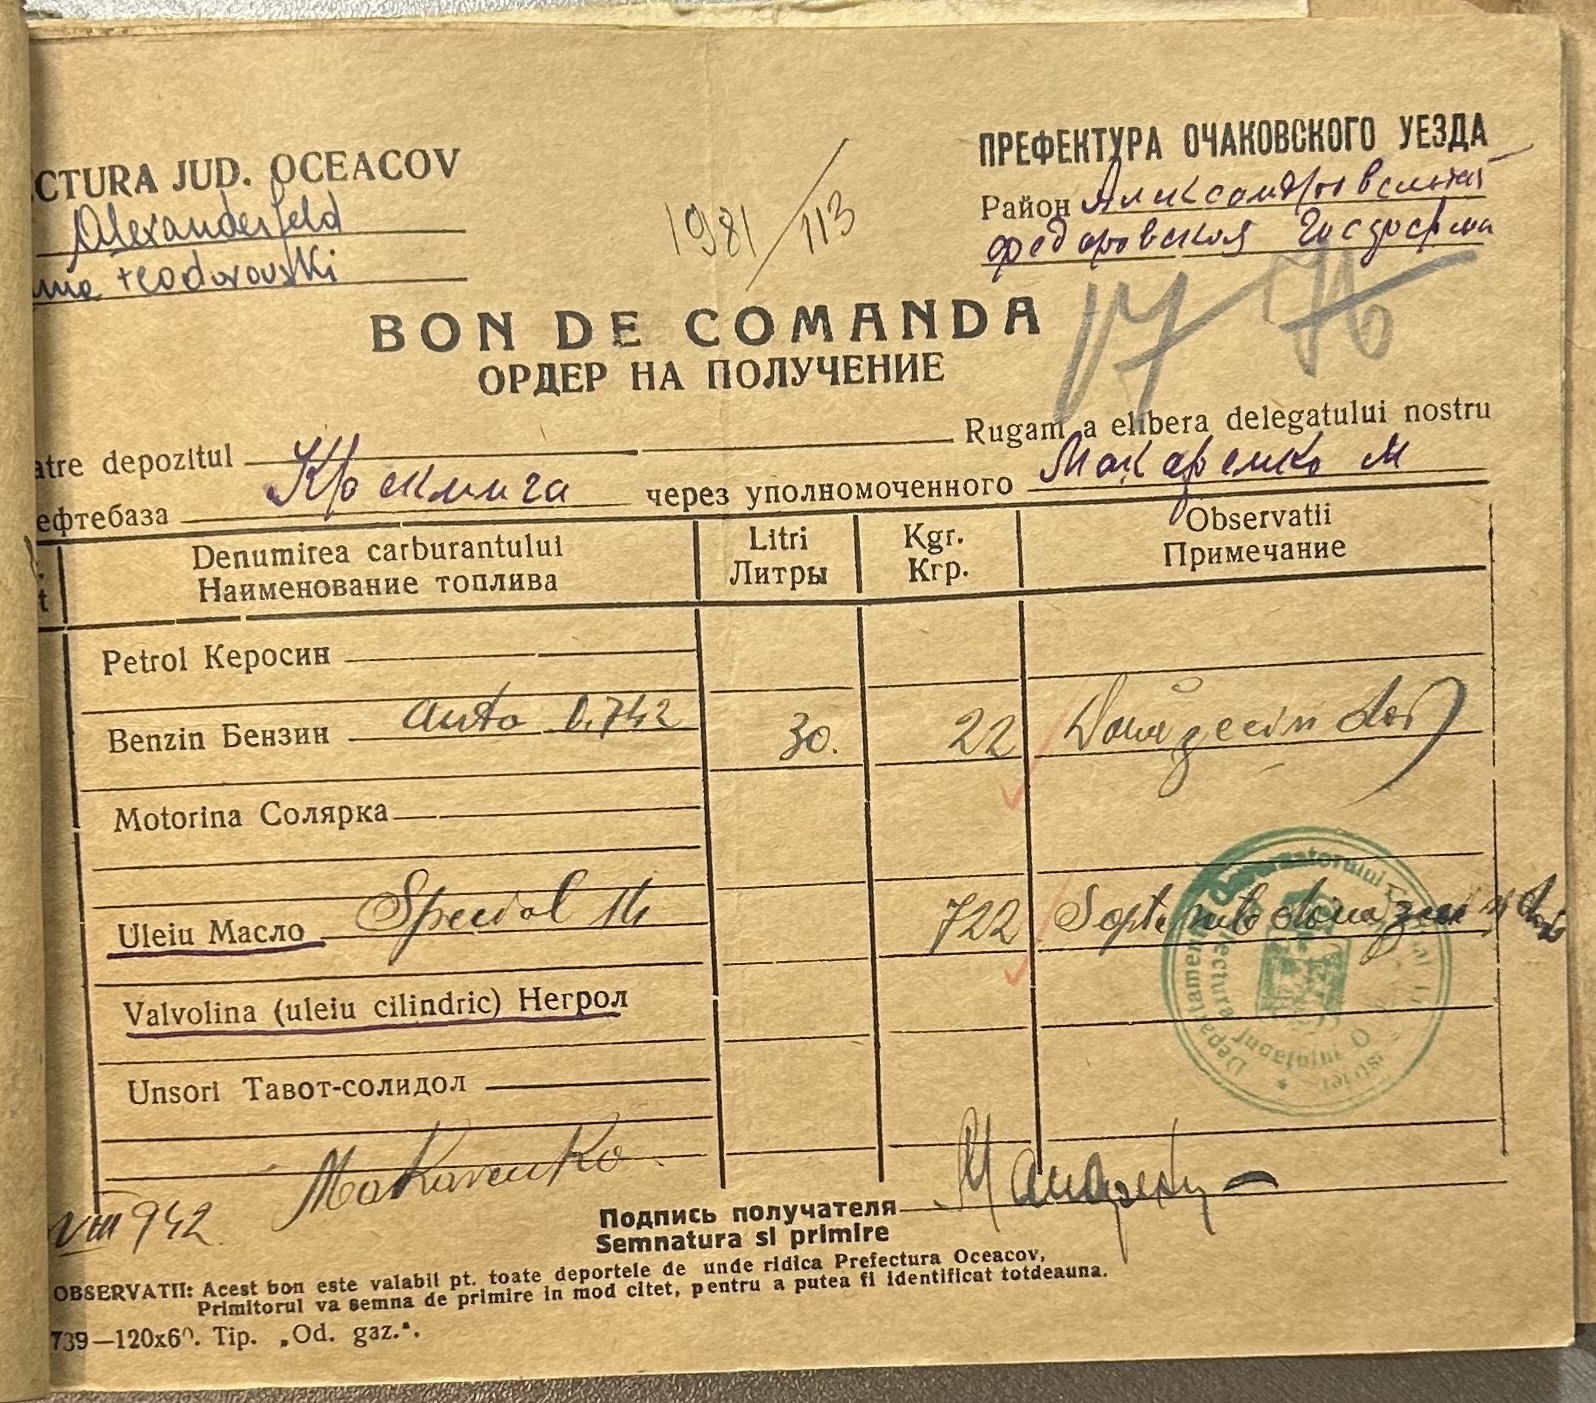 ECTURA JUD. OCEACOV
Alexanderfeld
teodorovski
ПРЕФЕКТУРА ОЧАКОВСКОГО УЕЗДА
Район Александровский
федоровская Госферма
1981/113
17 76
BON DE COMANDA
ОРДЕР НА ПОЛУЧЕНИЕ
atre depozitul Rugam a elibera delegatului nostru
ефтебаза через уполномоченного Макаренко М
Denumirea carburantului Litri Kgr. Observatii
Наименование топлива Литры Кгр. Примечание
Petrol Керосин
Benzin Бензин auto 0.742 30. 22 Două zeci și doi
Motorina Солярка
Uleiu Масло Special 14 722 Șapte sute două zeci și doi
Valvolina (uleiu cilindric) Негрол
Unsori Тавот-солидол
Makarenko
VIII 942
Подпись получателя
Semnatura si primire
OBSERVATII: Acest bon este valabil pt. toate deportele de unde ridica Prefectura Oceacov,
Primitorul va semna de primire in mod citet, pentru a putea fi identificat totdeauna.
739—120x60. Tip. „Od. gaz.“.